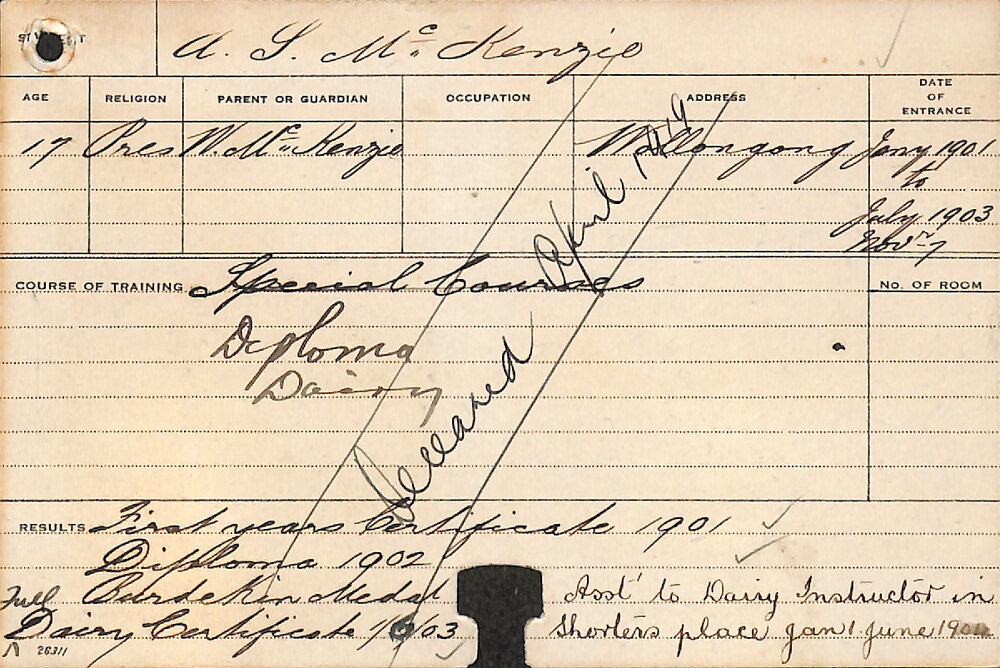 STUDENT
A. S. McKenzie
AGE
RELIGION
PARENT OR GUARDIAN
OCCUPATION
ADDRESS
DATE
OF
ENTRANCE
17 Pres W. McKenzie Wollongong Jany 1901
to
July 1903
Novr 7
COURSE OF TRAINING Special Courses
No. OF ROOM
Diploma
Dairy
Deceased April 1919
RESULTS First years Certificate 1901
Diploma 1902
Burdekin Medal
Full
Dairy Certificate 1/9/03
Asst to Dairy Instructor in
Shorters place Jan 1 June 1904
26311